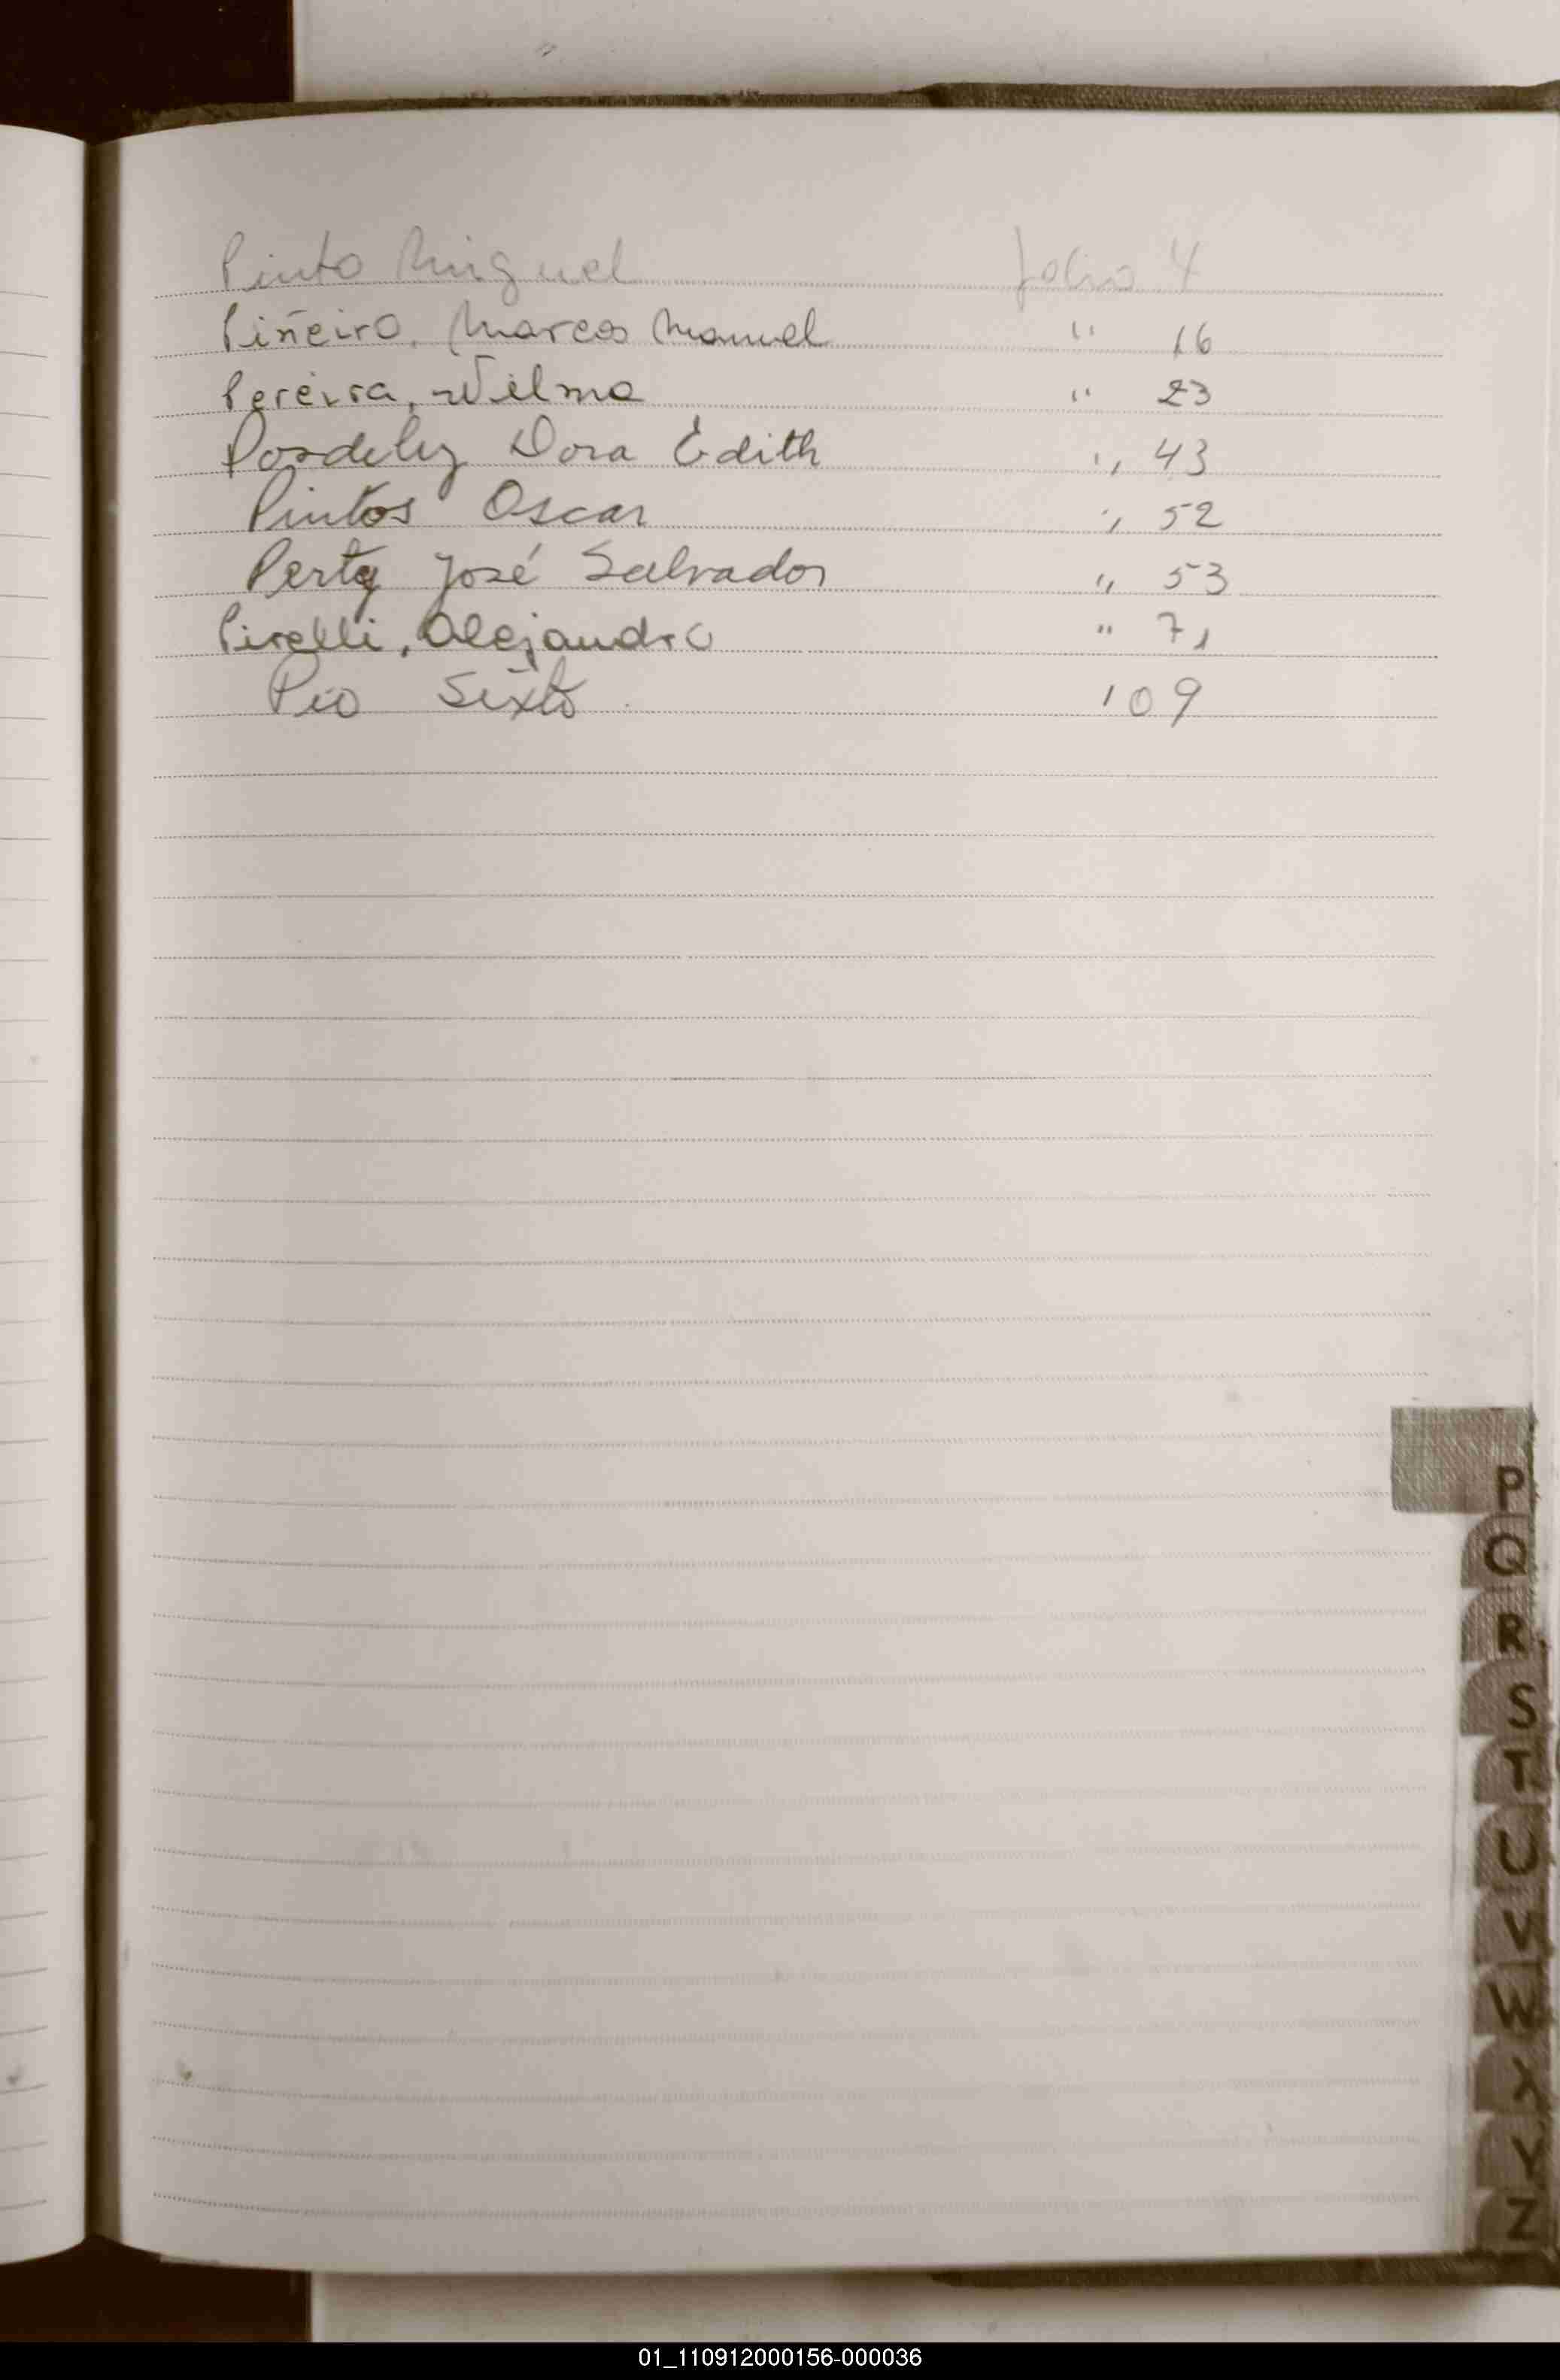 Pinto Miguel folio 4
Piñeiro, Marcos Manuel " 16
Pereira, Wilma " 23
Dora Edith " 43
Pintos Oscar " 52
José Salvador " 53
Pirelli, Alejandro " 71
Pio Sixto 109
P
Q
R
S
T
U
V
W
X
Y
Z
01_110912000156-000036